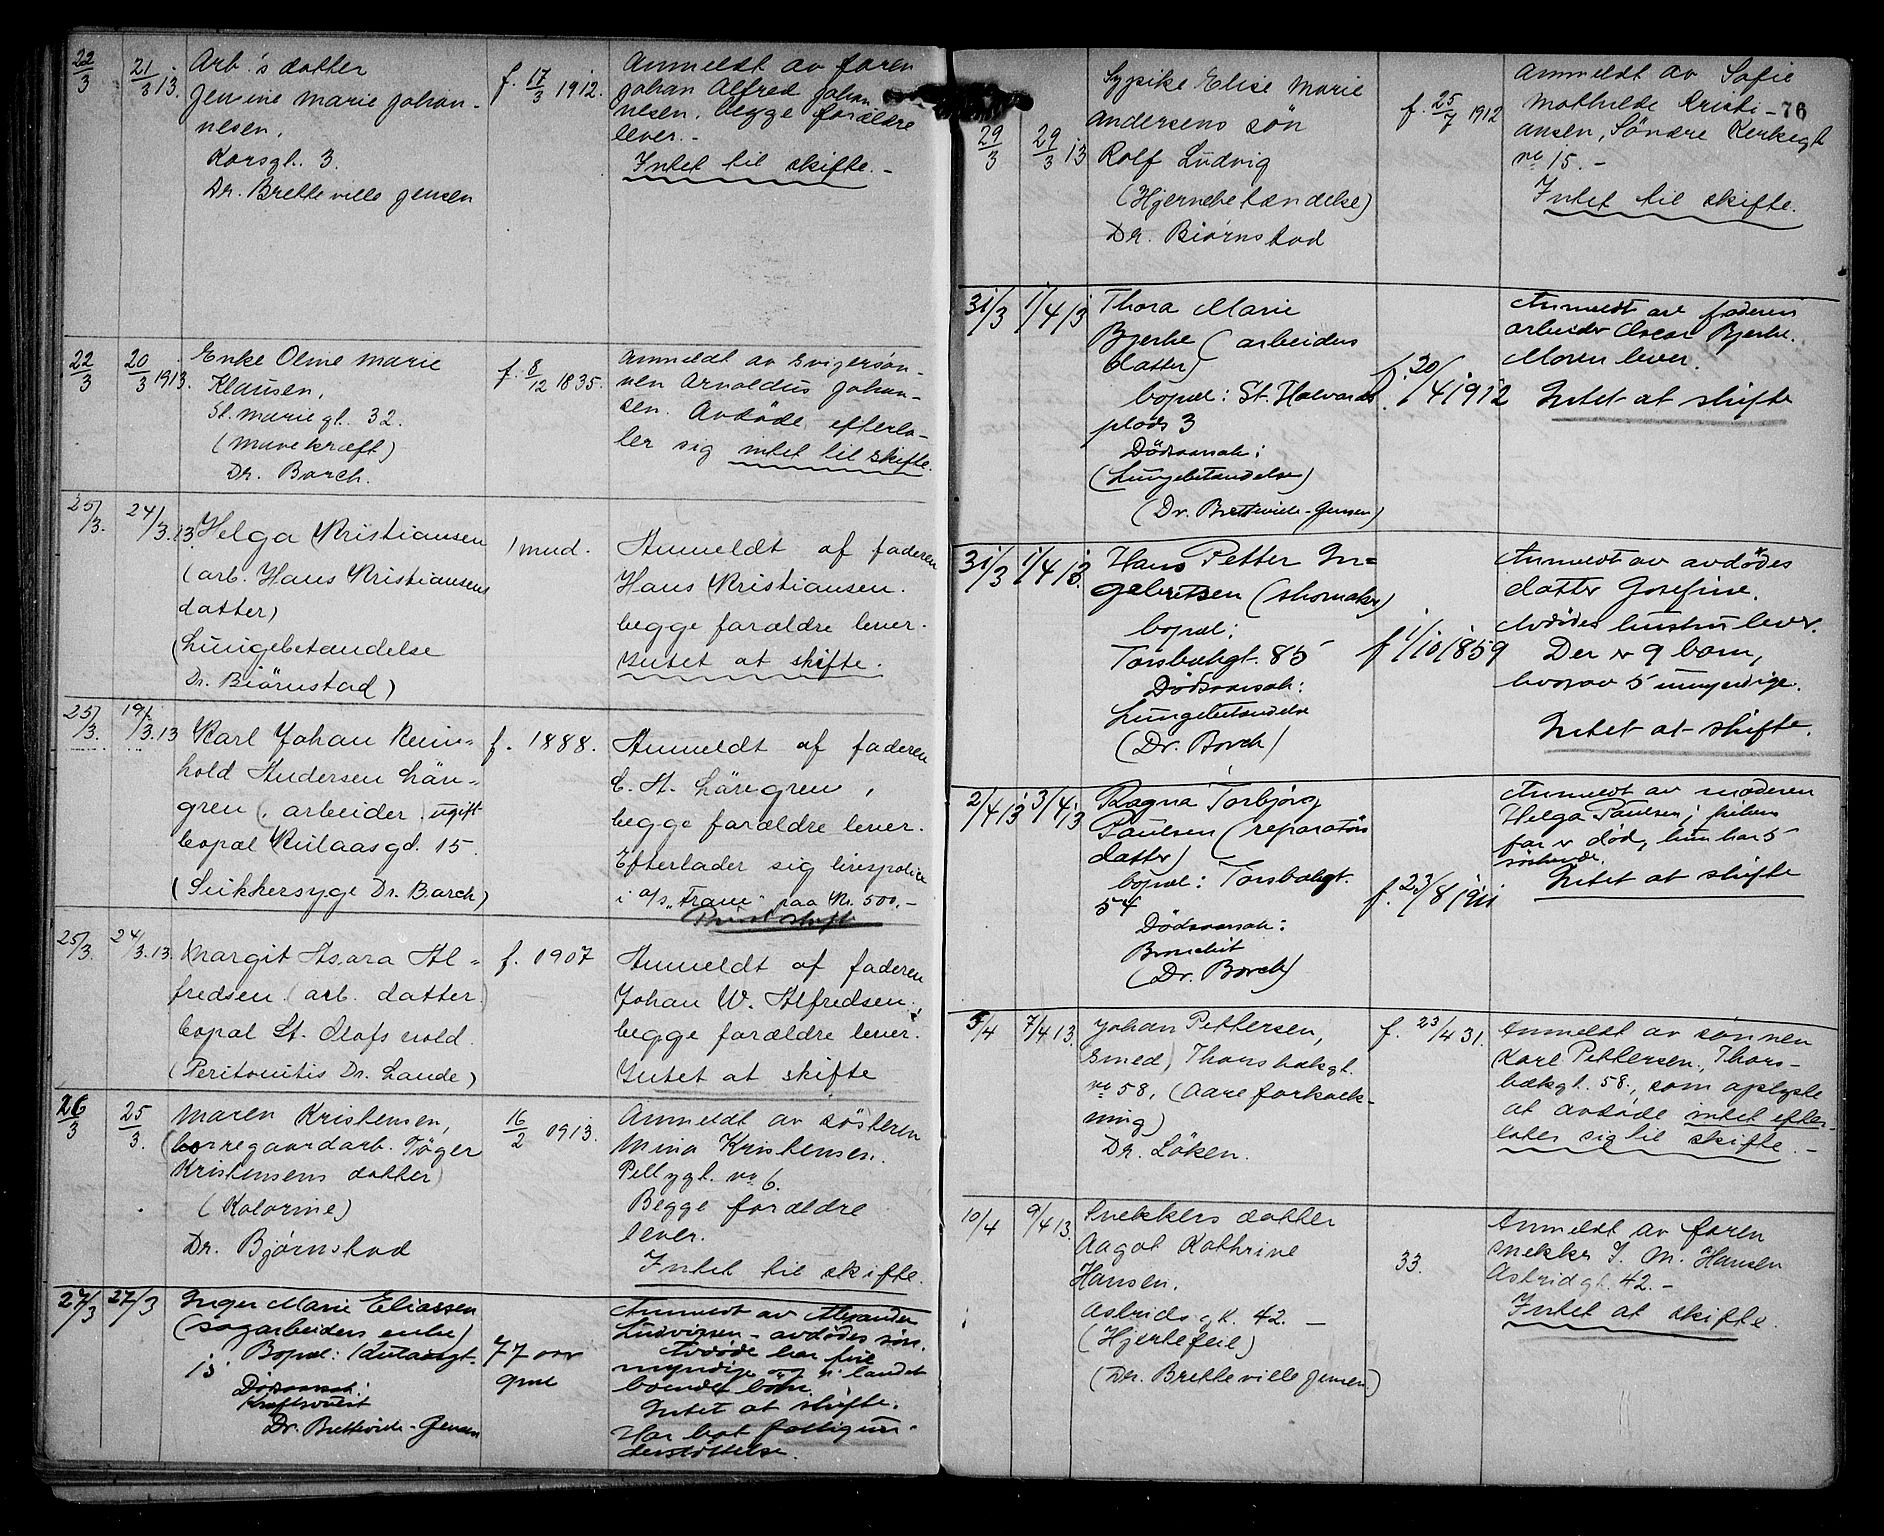 22/3 21/3 13. Arb.'s datter f. 17/3 1912. Anmeldt av faren
Jensine Marie Johan- Johan Alfred Johan
nesen. nesen. begge forældre
lever.-
Korsgt. 3. Intet til skifte.-
Dr. Bretteville Jensen
22/3 20/3 1913. Enke Oline Marie f. 8/12 1835. Anmeldt av svigersøn-
Klausen, nen Arnoldus Johan-
St. Marie gt. 32. sen. Avdøde efterla-
(Mavekræft) ter sig intet til skifte.
Dr. Borch.
25/3. 24/3.13 Helga Kristiansen 1 mnd. Anmeldt af faderen
(arb. Hans Kristiansens Hans Kristiansen.
datter) begge forældre lever.
(Lungebetændelse Intet at skifte.
Dr. Biørnstad)
25/3. 19/3.13 Karl Johan Rein- f. 1888. Anmeldt af faderen
hold Andersen Län- C. A. Länegren,
gren (, arbeider, ugift begge forældre lever.
bopæl Kulaasgd. 15. Efterlader sig livspolice
(Sukkersyge Dr. Borch) i a/s "Fram" paa Kr. 500.-
Privat skifte
25/3. 24/3.13. Margit Asara Al- f. 1907 Anmeldt af faderen
fredsen (arb. datter) Johan W. Alfredsen.
bopæl St. Olafs vold. begge forældre lever.
(Peritonitis Dr. Lande) Intet at skifte
26/3 25/3. Maren Kristensen, 16/2 1913. Anmeldt av søsteren
(borregaardarb. Tøger Mina Kristensen.
Kristensens datter) Pellygt. no 6.
(Kolorine) Begge forældre
Dr. Bjørnstad lever.
Intet til skifte.
27/3 27/3 Inger Marie Eliassen 77 aar Anmeldt av Alexander
(sagarbeiders enke) gml Ludvigsen - avdødes søn.
Bopæl: Kulaasgt. Avdøde har fire
15 myndige og i landet
Dødsaarsak: boende børn.
Dr. Bretteville-Jensen Intet at skifte.
Har hat fattigun-
derstøttelse.
76
29/3 29/3 13 Sypike Elise Marie f. 25/7 1912 Anmeldt av Sofie
Andersens søn Mathilde Kristi-
Rolf Ludvig ansen, Søndre Kirkegt
(Hjernebetændelse) no 15.-
Dr. Biørnstad Intet til skifte.
31/3 1/4 13 Thora Marie f. 20/4 1912 Anmeldt av faderen
Bjerke (arbeiders arbeider Oscar Bjerke.
datter) Moren lever.
bopæl: St. Halvards Intet at skifte
plads 3
Dødsaarsak:
(Lungebetændelse)
(Dr. Bretteville-Jensen)
31/3 1/4 13. Hans Petter In- f 1/10 1859 Anmeldt av avdødes
gebretsen (skomaker) datter Josefine.
bopæl: Avdødes hustru lever.
Torsbækgt. 85 Der er 9 barn,
Dødsaarsak: hvorav 5 umyndige.
Lungebetændelse Intet at skifte.
(Dr. Borch)
2/4 13 3/4 13 Ragna Torbjørg f. 23/8 1911 Anmeldt av moderen
Paulsen (reparatørs Helga Paulsen; pikens
datter) far er død, hun har 5
bopæl: Torsbækgt. søskende.
54 Intet at skifte
Dødsaarsak:
Bronchit
(Dr. Borch)
5/4 7/4 13. Johan Pettersen, f. 23/4 31. Anmeldt av sønnen
(smed) Thorsbækgt. Karl Pettersen, Thors-
no 58, (Aareforkalk- bækgt. 58., som oplyste
ning) at avdøde intet efter-
Dr. Løken. later sig til skifte.-
10/4 9/4 13. Snekkers datter 33. Anmeldt av faren
Aagot Kathrine snekker J. M. Hansen
Hansen. Astridgt. 42.-
Astridsgt. 42. - Intet at skifte.
(Hjertefeil)
(Dr. Bretteville Jensen)